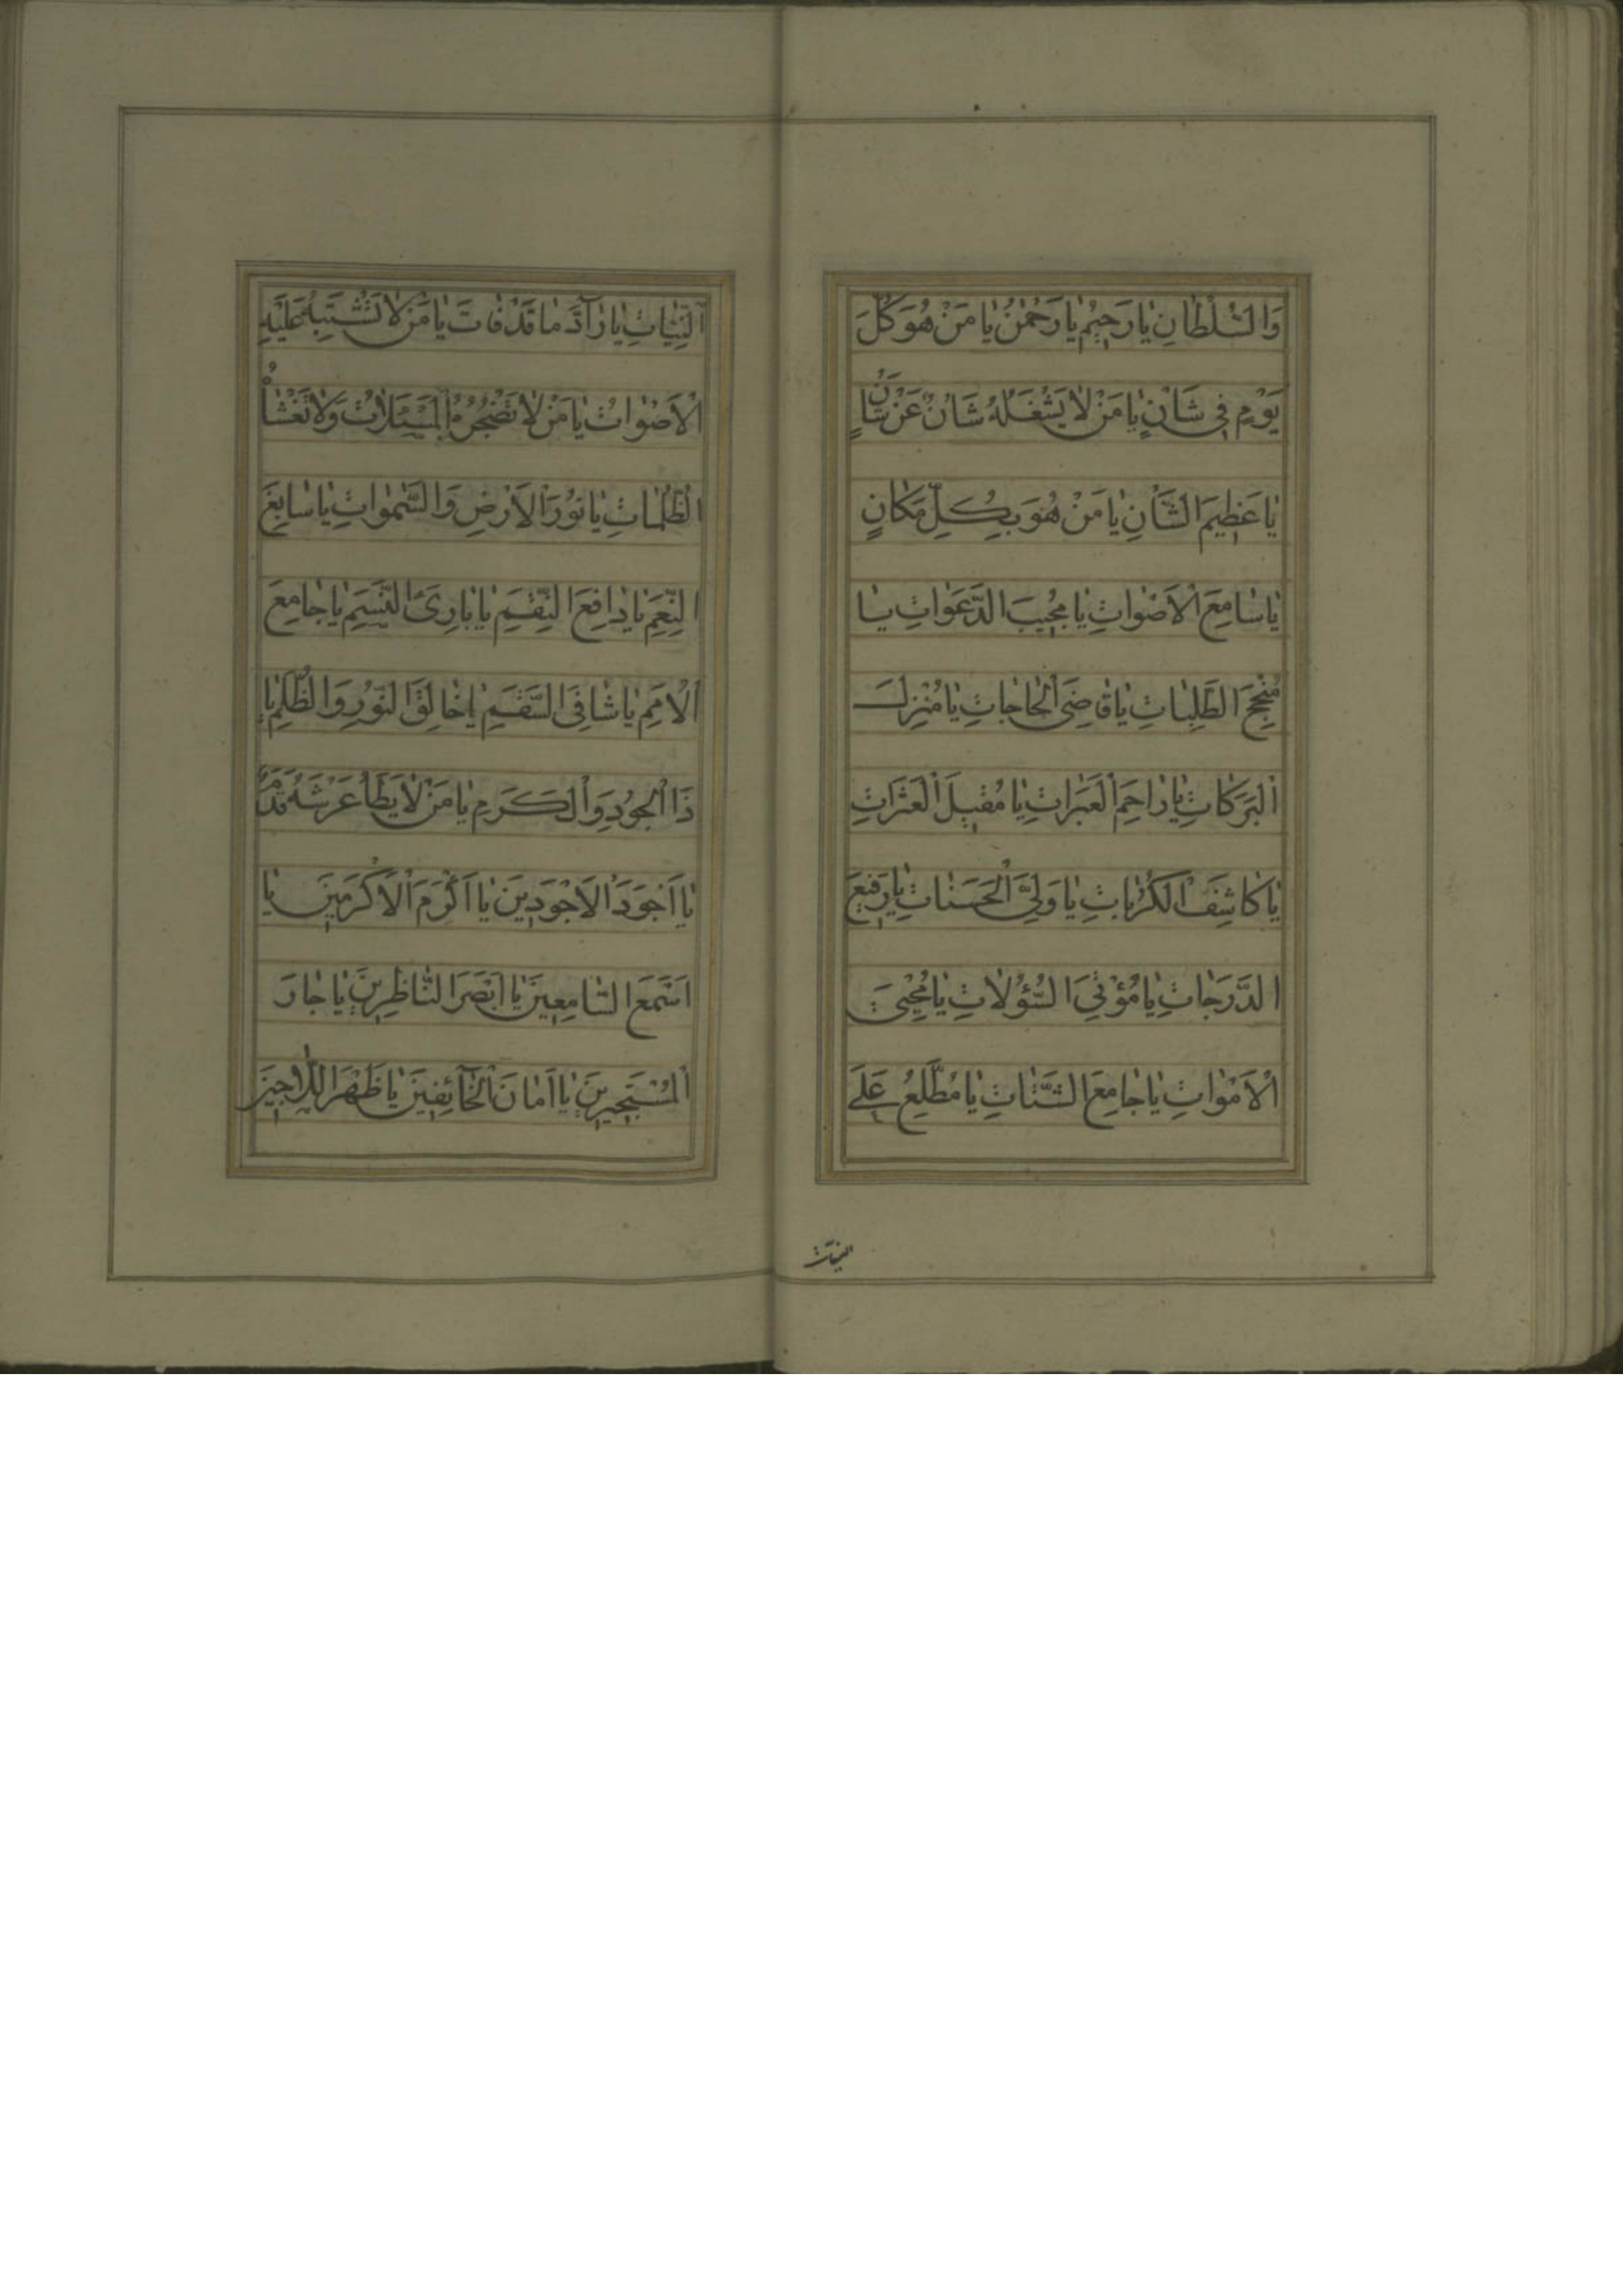 وَالسُّلْطَانِ يَا رَحِيْمُ يَا رَحْمٰنُ يَا مَنْ هُوَ كُلَّ
يَوْمٍ فِي شَاْنٍ يَا مَنْ لَا يَشْغَلُهُ شَاْنٌ عَنْ شَاْنٍ
يَا عَظِيمَ الشَّأْنِ يَا مَنْ هُوَ بِكُلِّ مَكَانٍ
يَا سَامِعَ الْاَصْوَاتِ يَا مُجِيبَ الدَّعَوَاتِ يَا
مُنْجِحَ الطَّلِبَاتِ يَا قَاضِيَ الْحَاجَاتِ يَا مُنْزِلَ
الْبَرَكَاتِ يَا رَاحِمَ الْعَبَرَاتِ يَا مُقِيلَ الْعَثَرَاتِ
يَا كَاشِفَ الْكُرُبَاتِ يَا وَلِيَّ الْحَسَنَاتِ يَا رَفِيعَ
الدَّرَجَاتِ يَا مُؤْتِيَ السُّؤُلَاتِ يَا مُحْيِيَ
الْاَمْوَاتِ يَا جَامِعَ الشَّتَاتِ يَا مُطَّلِعُ عَلَى
النيات
النِّيَّاتِ يَا رَآدَّ مَا قَدْ فَاتَ يَا مَنْ لَا تَشْتَبِهُ عَلَيْهِ
الْاَصْوَاتُ يَا مَنْ لَا تُضْجِرُهُ الْمَسْئَلَاتُ وَلَا تَغْشَاهُ
الظُّلُمَاتِ يَا نُورَ الْاَرْضِ وَالسَّمٰوَاتِ يَا سَابِغَ
النِّعَمِ يَا دَافِعَ النِّقَمِ يَا بَارِئَ النَّسَمِ يَا جَامِعَ
الْاُمَمِ يَا شَافِيَ السَّقَمِ يَا خَالِقَ النُّورِ وَالظُّلَمِ يَا
ذَا الْجُودِ وَالْكَرَمِ يَا مَنْ لَا يَطَاُ عَرْشَهُ قَدَمٌ
يَا اَجْوَدَ الْاَجْوَدِينَ يَا اَكْرَمَ الْاَكْرَمِينَ يَا
اَسْمَعَ السَّامِعِينَ يَا اَبْصَرَ النَّاظِرِينَ يَا جَارَ
الْمُسْتَجِيرِينَ يَا اَمَانَ الْخَآئِفِينَ يَا ظَهْرَ اللَّاجِينَ